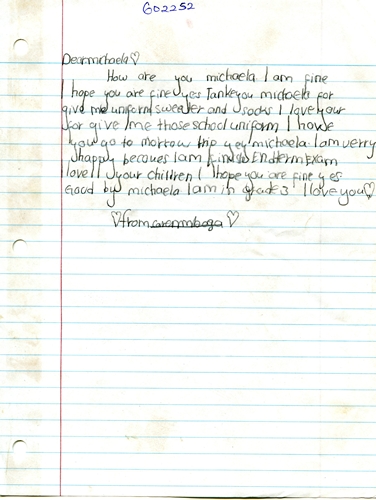 602252
Dear michaela♡
How are you michaela I am fine
I hope you are fine yes Tankeyou michaela for
give me uniform sweater and socks I love your
for give me those school uniform I howe
you go to morrow trip yey michaela I am verry
happy becaues I am finish Endterm Exam
love I your children I hope you are fine yes
Good by michaela I am in grade 3 I love you♡
♡from carenmboga♡